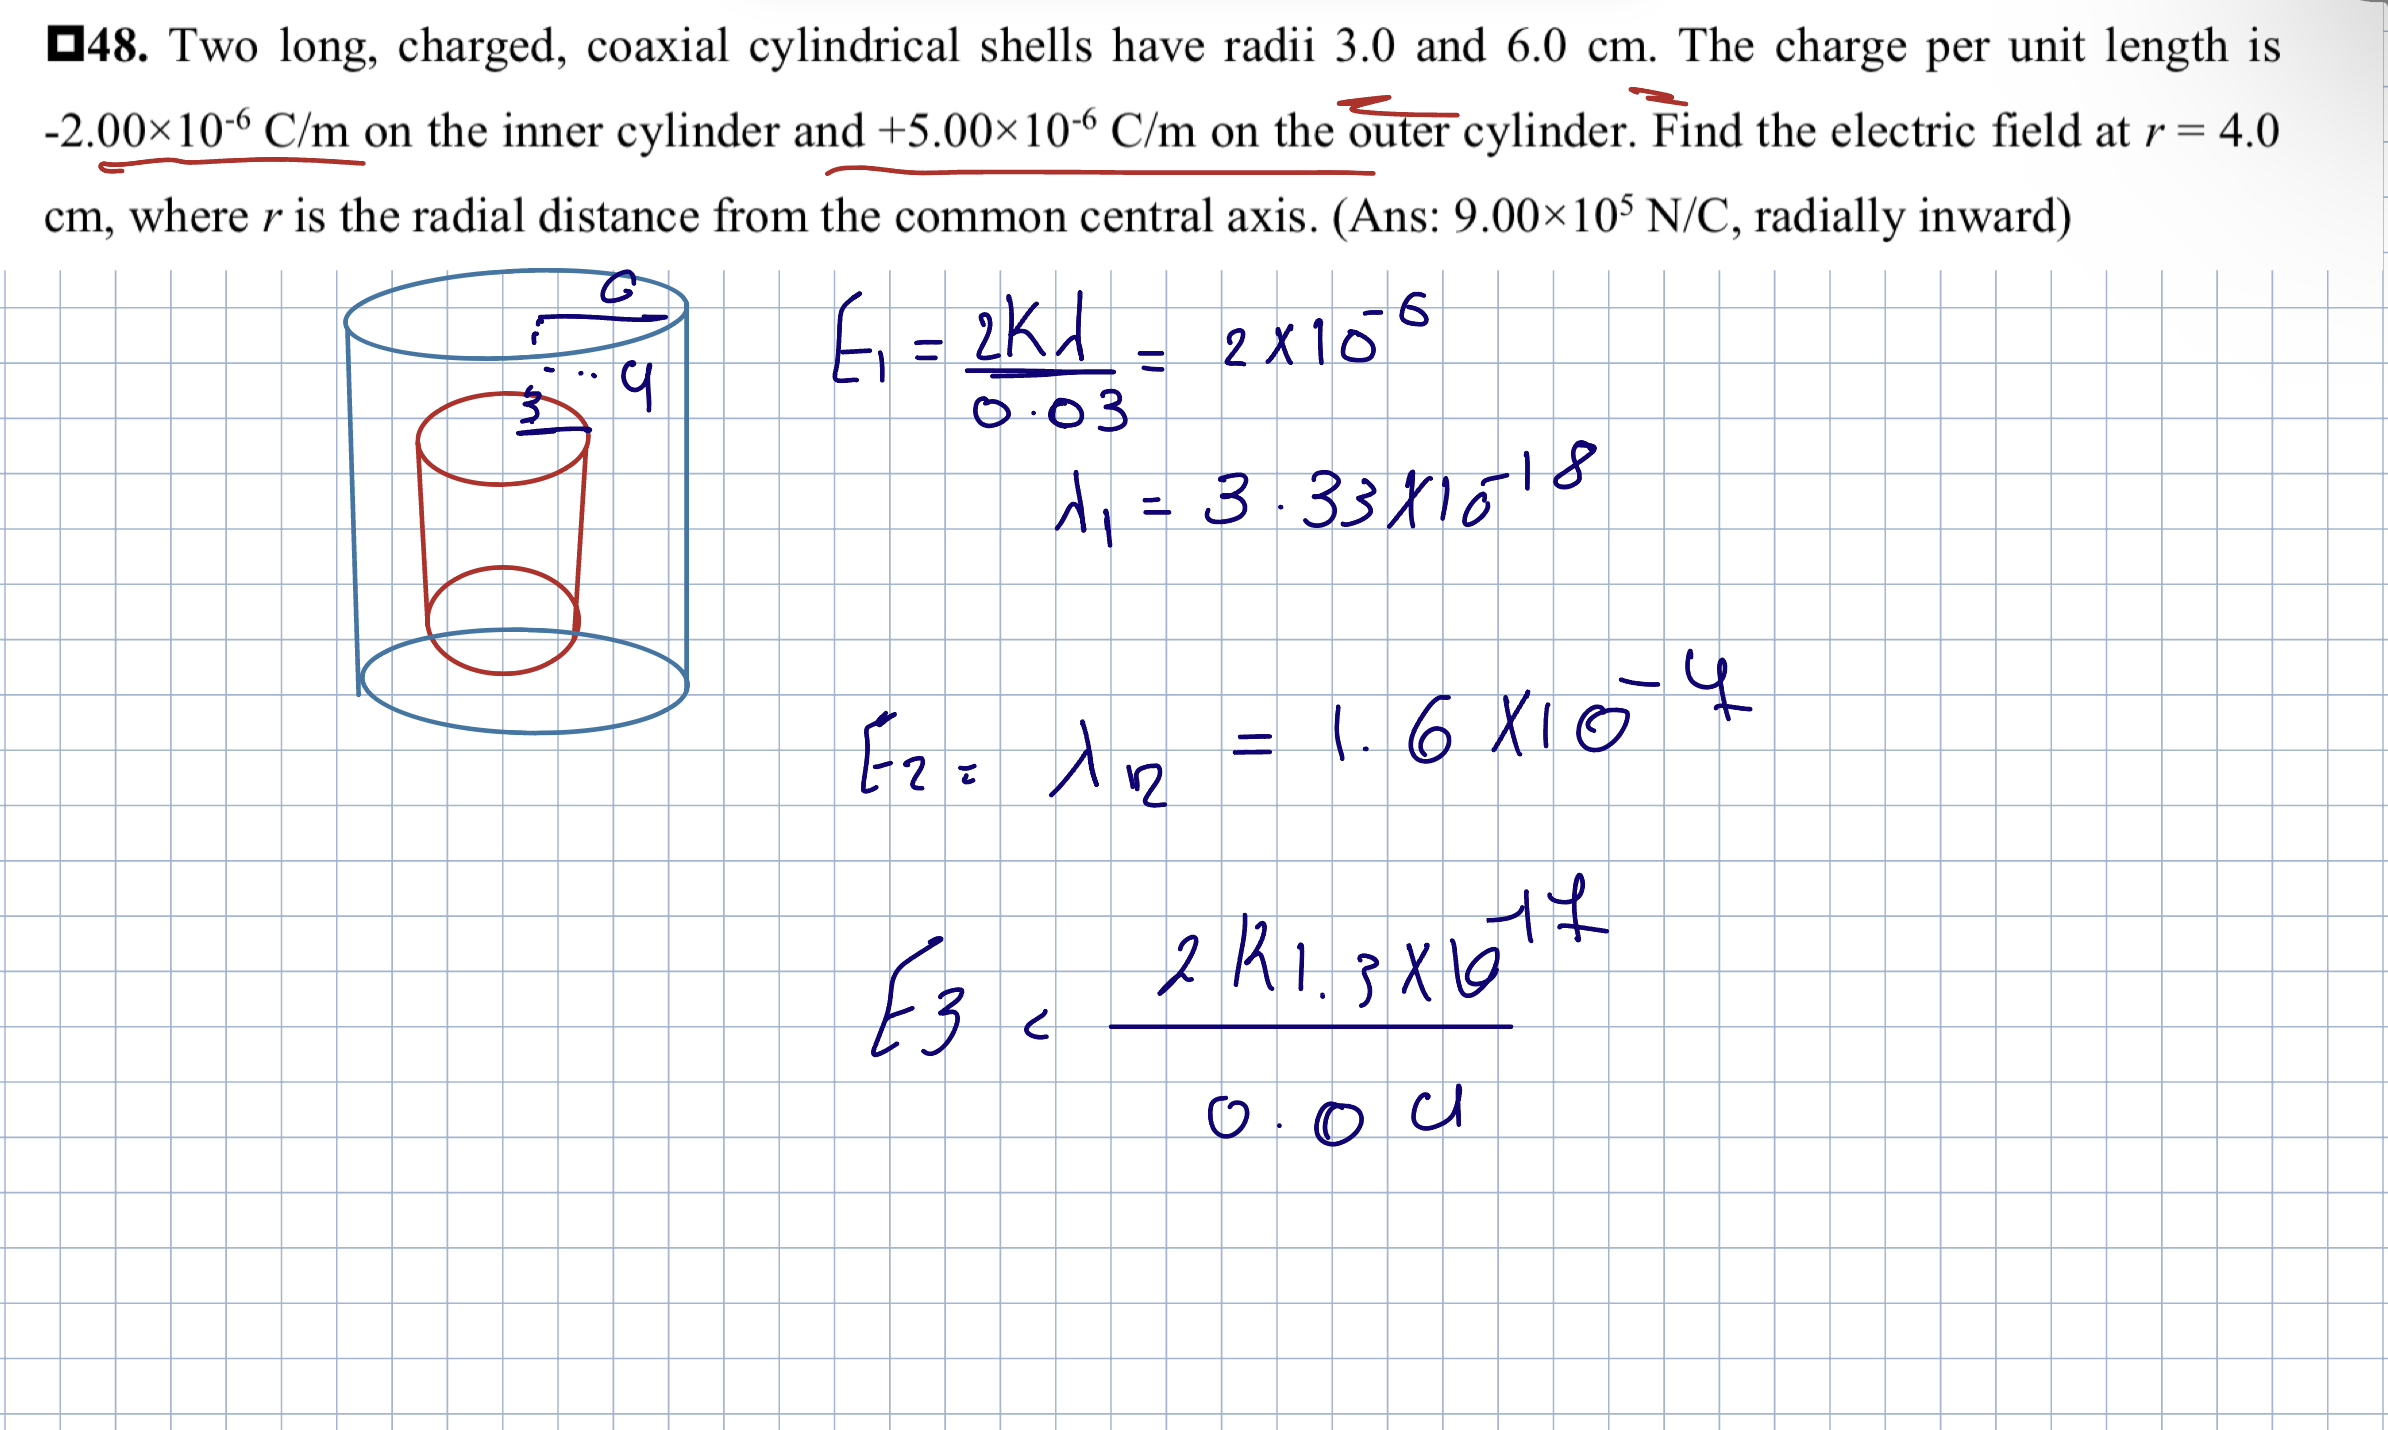 48. Two long, charged, coaxial cylindrical shells have radii 3.0 and 6.0 cm. The charge per unit length is
-2.00×10⁻⁶ C/m on the inner cylinder and +5.00×10⁻⁶ C/m on the outer cylinder. Find the electric field at r = 4.0
cm, where r is the radial distance from the common central axis. (Ans: 9.00×10⁵ N/C, radially inward)
6
4
3
E₁ = 2Kλ / 0.03 = 2×10⁻⁶
λ₁ = 3.33×10⁻¹⁸
E₂ = λ₂ = 1.6×10⁻⁷
E₃ = 2K1.3×10⁻¹⁷ / 0.04